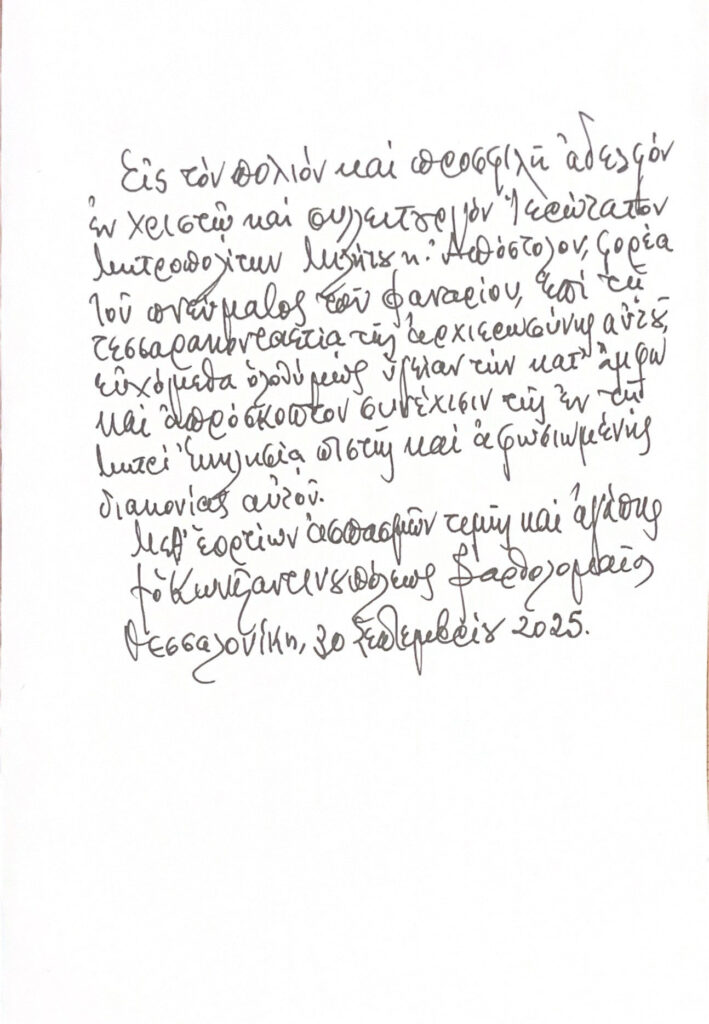 Εἰς τόν πολιόν καί προσφιλῆ ἀδελφόν
ἐν Χριστῷ καί συλλειτουργόν Ἱερώτατον
Μητροπολίτην Μιλήτου κ. Ἀπόστολον, φορέα
τοῦ πνεύματος τοῦ Φαναρίου, ἐπί τῇ
τεσσαρακονταετίᾳ τῆς ἀρχιερωσύνης αὐτοῦ,
εὐχόμεθα ὁλοθύμως ὑγείαν τήν κατ' ἄμφω
καί ἀπρόσκοπτον συνέχισιν τῆς ἐν τῇ
Μητρί Ἐκκλησίᾳ πιστῆς καί ἀφωσιωμένης
διακονίας αὐτοῦ.
Μεθ' ἑορτίων ἀσπασμῶν τιμῆς καί ἀγάπης
† ὁ Κωνσταντινουπόλεως Βαρθολομαῖος
Θεσσαλονίκη, 30 Σεπτεμβρίου 2025.